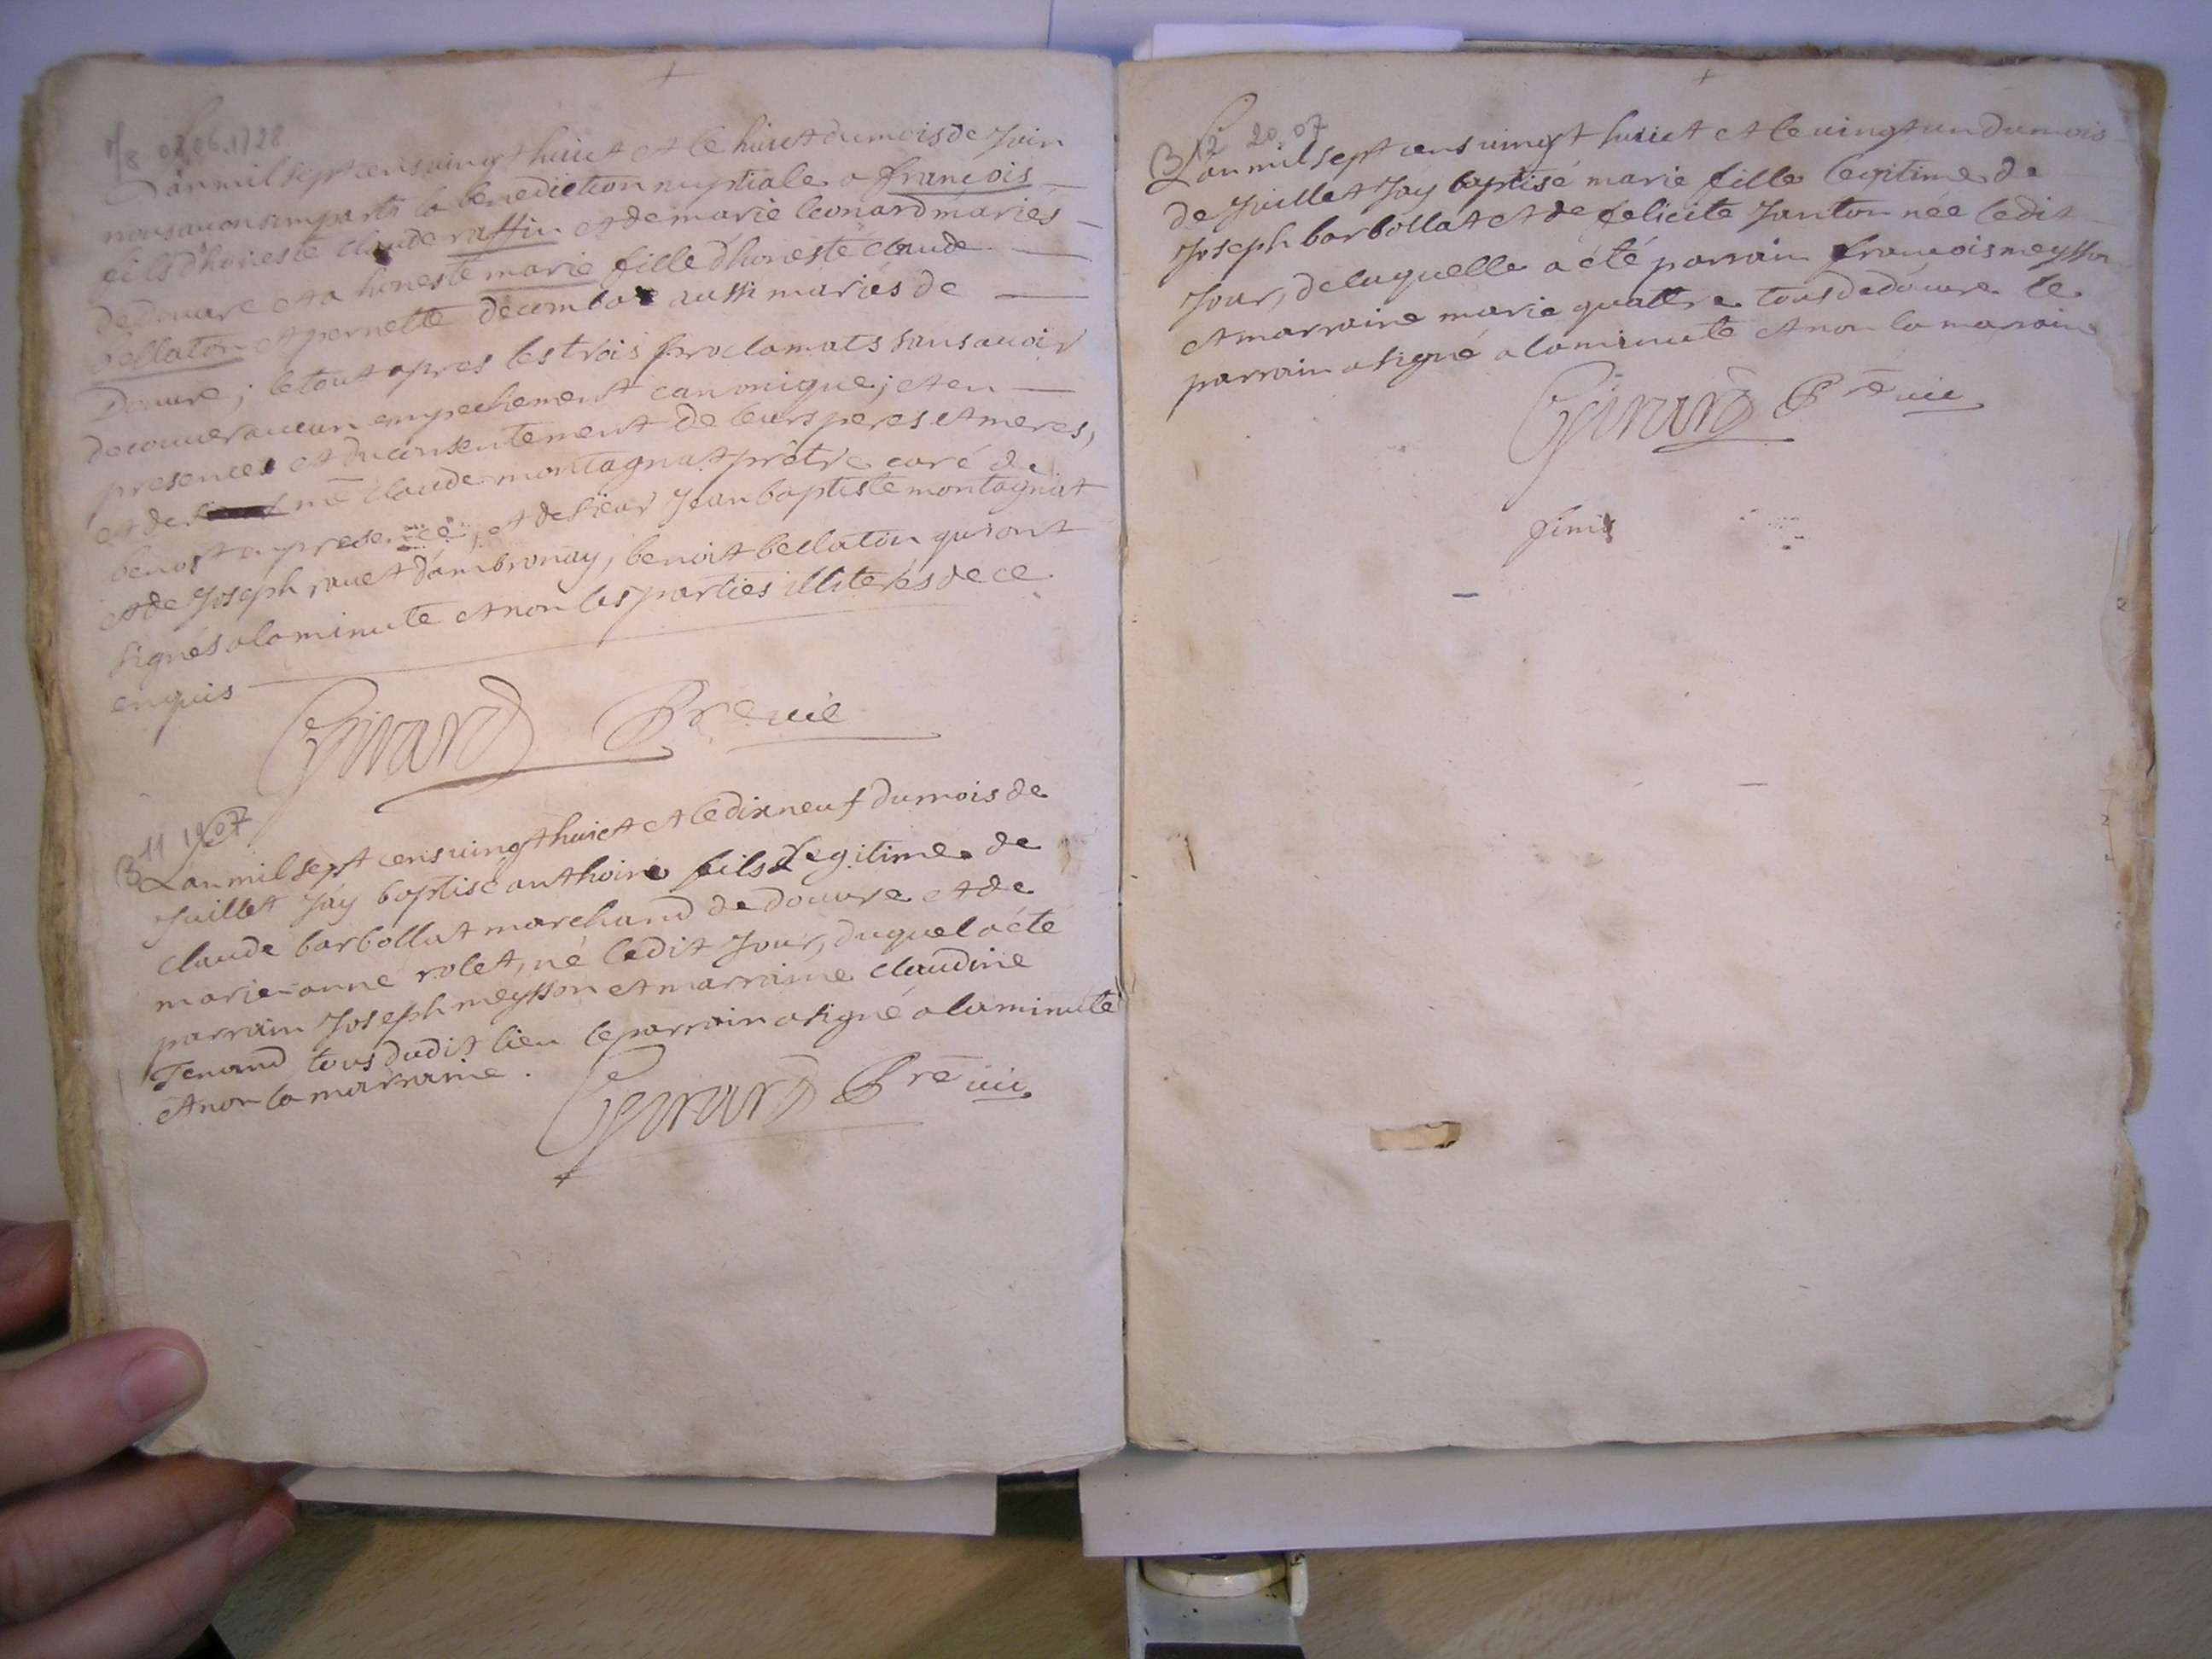 M8 08.06.1728
L'an mil sept cens vingt huict et le huict du mois de Juin
nous avons imparti la benediction nuptiale a françois
fils d'honeste claude raffin et de marie leonard mariés
de douvre et a honeste marie fille d'honeste claude
bellaton et pernette decombe aussi mariés de
Douvre; le tout apres les trois proclamats sans avoir
decouvert aucun empechement canonique; et en
presences et du consentement de leurs peres et meres,
et de mē claude montagnat prêtre curé de
benost en presence, et de sieur Jean baptiste montagnat
et de Joseph ravet d'ambronay, benoit bellaton qui ont
signés a la minute et non les parties illiterés de ce
enquis
Girard Prē vic
B 11 19.07
L'an mil sept cens vingt huict et le dix neuf du mois de
Juillet J'ay baptisé anthoine fils legitime de
claude barbollat marchand de douvre et de
marie anne rolet, né ledit Jour, duquel a été
parrain Joseph meysson et marraine claudine
Tenand tous dudit lieu le parrain a signé a la minute
et non la marraine.
Girard Prē vic
B 12 20.07
L'an mil sept cens vingt huict et le vingt un du mois
de Juillet J'ay baptisé marie fille legitime de
Joseph barbollat et de felicite Janton née ledit
Jour, de laquelle a été parrain francois meysson
et marraine marie quattre tous de douvre le
parrain a signé a la minute et non la marraine
Girard Prē vic
finis